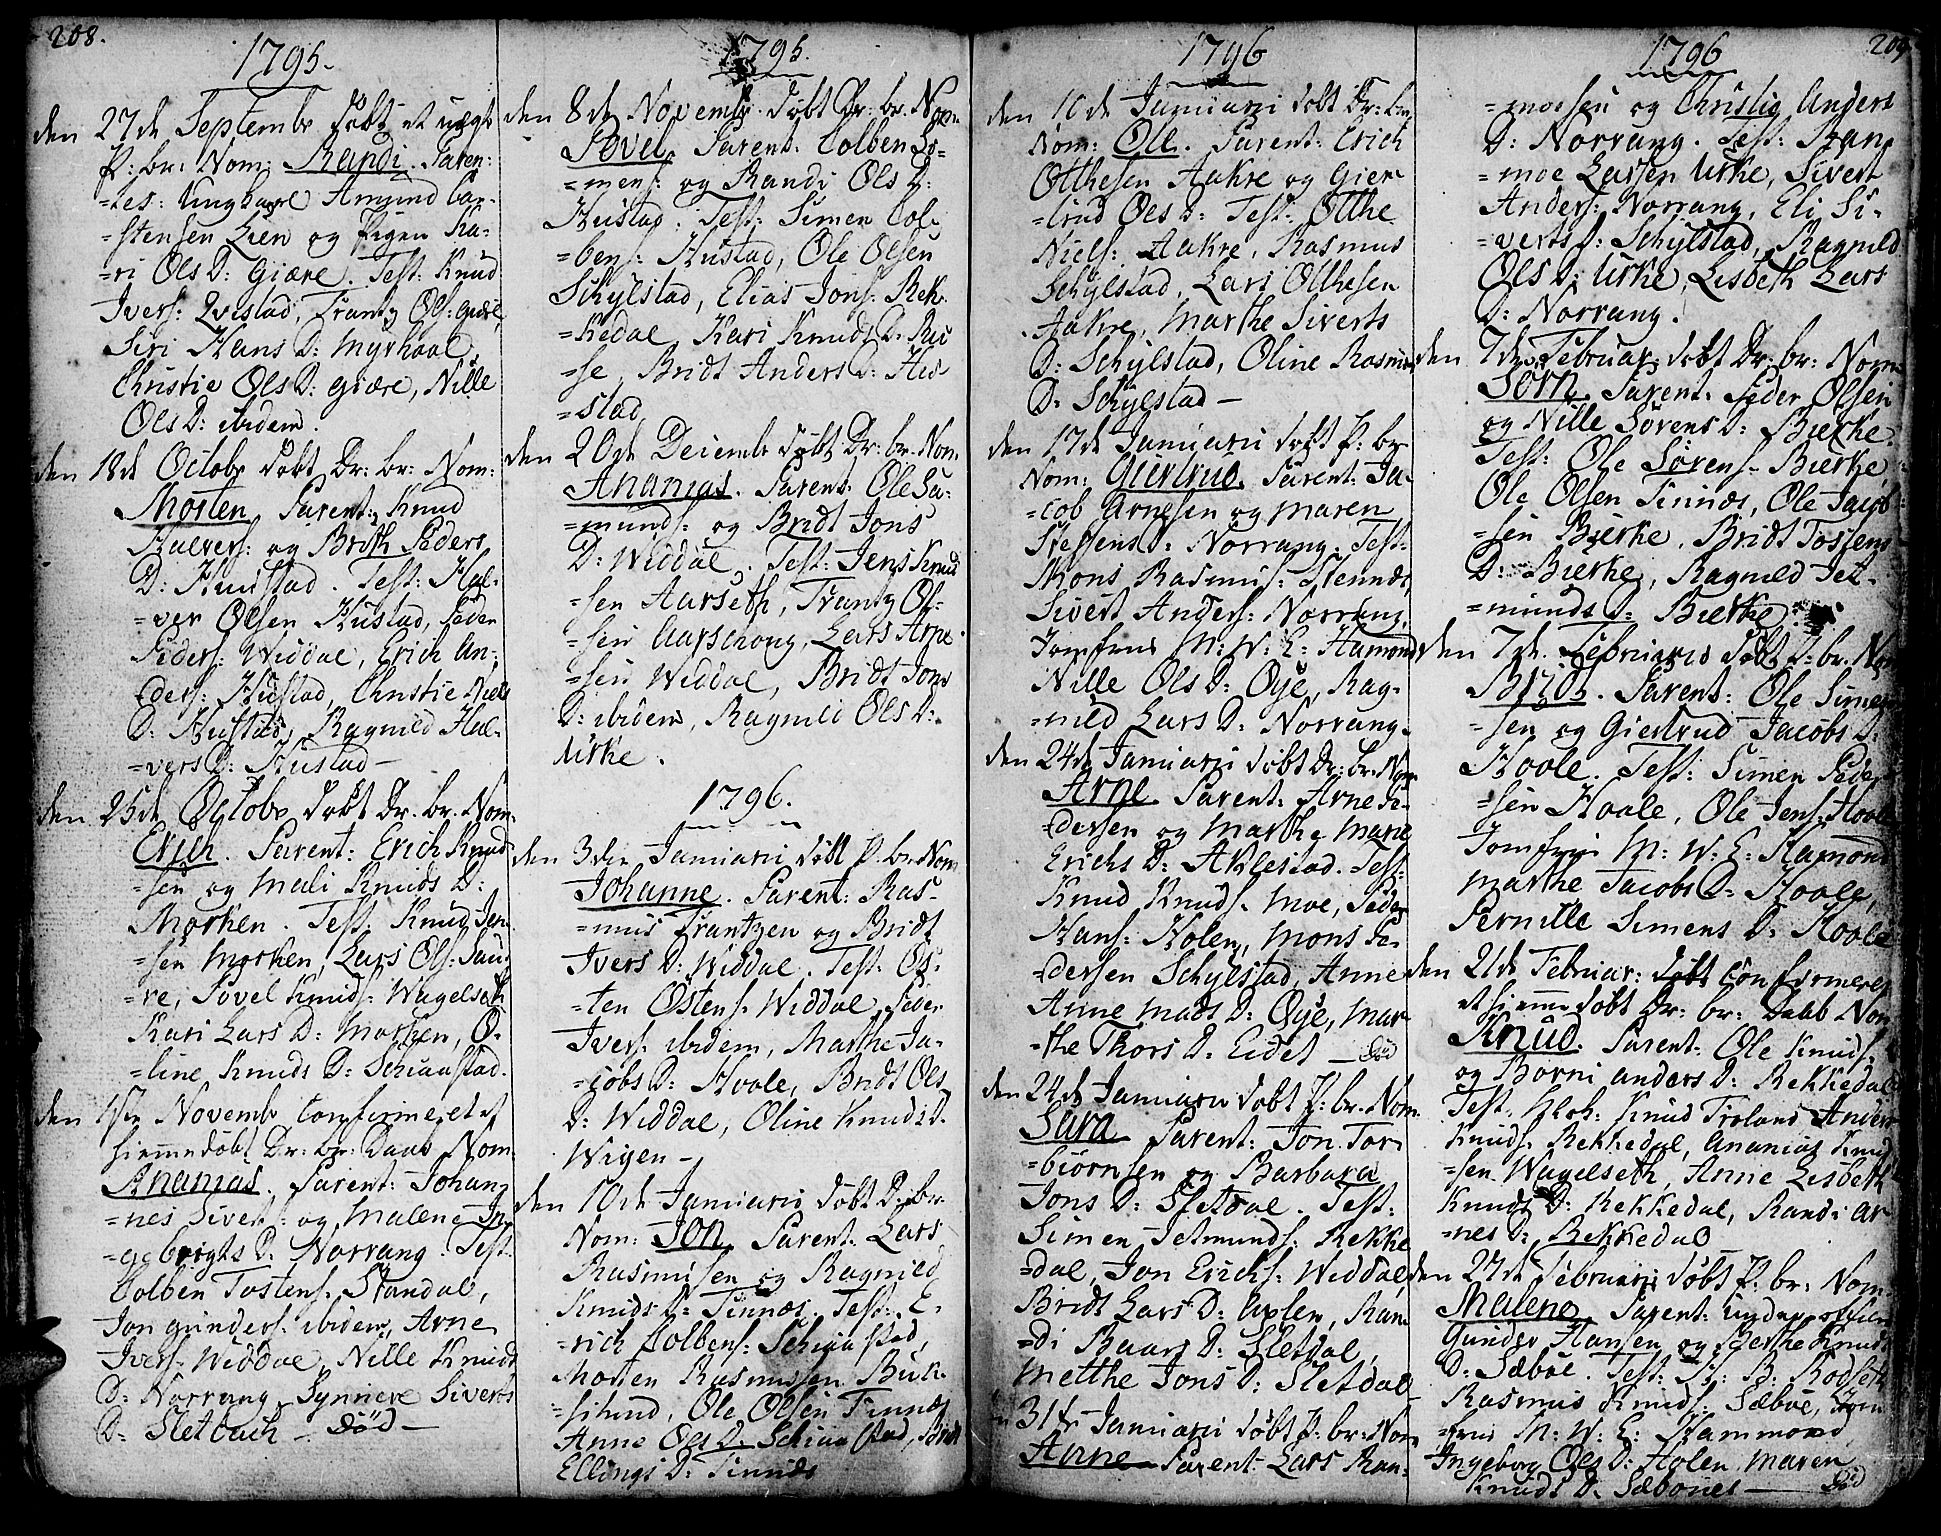 208.
1795.
den 27de Septembr døbt et uægt
P: br: Nom: Randi. Paren:
=tes: Ungkarl Amund Car=
=stensen Lien og Pigen Ka=
=ri Ols D: Giære. Test: Knud
Ivers: Qvistad, Frantz Ols: Giære,
Siri Hans D: Myrhaal,
Christie Ols D: Giære, Nille
Ols D: ibidem.
den 18de Octobr døbt Dr: br: Nom:
Morten. Parent: Knud
Halvers: og Brith Peders
D: Hustad. Test: Hal=
=ver Olsen Hustad, Peder
Peders: Widdal, Erich An=
=ders: Hustad, Christie Niels
D: Hustad, Ragnild Hal=
=vers D: Hustad —
den 25de Octobr døbt Dr: br: Nom:
Erich. Parent: Erich Knud=
=sen og Mali Knuds D:
Morken. Test: Knud Jen=
=sen Morken, Lars Ols: Sau=
=re, Povel Knuds: Wagelseth
Kari Lars D: Morken, O=
=line Knuds D: Schiaastad.
den 1ste Novembr Confirmeret et
hiemmedøbt Dr: br: Daab Nom:
Ananias. Parent: Johan=
=nes Sivert: og Malene In=
=gebrigts D: Norrang. Test:
Colben Tostens: Standal,
Jon Gunders: ibidem, Arne
Ivers: Widdal, Nille Knuds
D: Norrang, Synnere Siverts
D: Sletbach — død —
1795.
den 8de Novembr: døbt Dr: br: Nom:
Povel. Parent: Colben Si=
=mens: og Randi Ols D:
Hustad. Test: Simen Col=
=bens: Hustad, Ole Olsen
Schylstad, Elias Jons: Rek=
=kedal, Kari Knuds D: Ru=
=se, Bridt Anders D: Hu=
=stad
den 20de Decembr døbt Dr: br: Nom:
Ananias. Parent: Ole Sa=
=munds: og Bridt Jons
D: Widdal. Test: Jens Knud
=sen Aarseth, Frantz Ol=
=sen Aarschoug, Lars Arne=
=sen Widdal, Bridt Jons
D: ibidem, Ragnild Ols D:
Urke.
1796.
den 3den Januarii døbt P: br: Nom:
Johanne. Parent: Ras=
=mus Frantzen og Bridt
Ivers D: Widdal. Test: Os=
=ten Østens: Widdal, Peder
Ivers: ibidem, Marthe Ja=
=cobs D: Hoole, Bridt Ols
D: Widdal, Oline Knuds D:
Wigen —
den 10de Januarii døbt Dr: br:
Nom: Jon. Parent: Lars
Rasmusen og Ragnild
Knuds D: Tinnæs. Test: E=
=rich Colbens: Schiaastad,
Morten Rasmussen Buk=
Ole Olsen Tinnæs
Anne Ols D: Schiaastad, Bridt
Ellings D: Tinnæs
1796
den 10de Januarii døbt Dr: br:
Nom: Ole. Parent: Erich
Otthesen Aakre og Gier=
=trud Ols D: Test: Otthe
Niels: Aakre, Rasmus
Schylstad, Lars Otthesen
Aakre, Marthe Siverts
D: Schylstad, Oline Rasmus
D: Schylstad —
den 17de Januarii døbt P: br:
Nom: Giertrud. Parent: Ja=
=cob Arnesen og Maren
Steffens D: Norrang. Test:
Mons Rasmus: Stennæs,
Sivert Anders: Norrang,
Jomfrue M: W: E: Hamond
Nille Ols D: Øye, Rag=
=nild Lars D: Norrang.
den 24de Januarii døbt Dr: br: Nom:
Arne. Parent: Arne Pe=
=dersen og Marthe Marie
Erichs D: Aklestad. Test:
Knud Knuds: Moe, Peder
Hans: Holen, Mons Pe=
=dersen Schylstad, Anne
Anne Mads D: Øye, Mar=
=the Thors D: Eidet — død
den 24de Januarii døbt P: br: Nom:
Sara. Parent: Jon Tor=
=biørnsen og Barbara
Jons D: Sletdal. Test:
Simen Jetmunds: Rekke
=dal, Jon Erichs: Widdal,
Bridt Lars D: Axlen, Ran=
=di Baars D: Sletdal,
Metthe Jons D: Sletdal
31te Januarii døbt P: br: Nom:
Anne. Parent: Lars Ran=
209
1796
=moesen og Christie Anders
D: Norrang. Test: Ran=
=moe Larsen Urke, Sivert
Anders: Norrang, Eli Si=
=verts D: Schylstad, Ragnild
Ols D: Urke, Lisbeth Lars
D: Norrang.
den 7de Februar: døbt Dr: br: Nom:
Sørn. Parent: Peder Olsen
og Nille Sørens D: Bierke.
Test: Ole Sørens: Bierke,
Ole Olsen Tinnæs, Ole Jacob
=sen Bierke, Bridt Tostens
D: Bierke, Ragnild Jet=
=munds D: Bierke.
den 7de Februarii døbt P: br: Nom
Bridt. Parent: Ole Simen
=sen og Giertrud Jacobs D:
Hoole. Test: Simen Peder
=sen Hoole, Ole Jens: Hoole
Jomfrue M: W: E: Hamond
Marthe Jacobs D: Hoole,
Pernille Simens D: Hoole
den 21de Februar: døbt Confirmeret
et hiemmedøbt Dr: br: Daab Nom
Knud. Parent: Ole Knuds:
og Borni Anders D: Rekkedal
Test: Klok: Knud Troland, Anders
Knuds: Rekkedal, Ananias Knud
=sen Wagelseth, Anne Lisbeth
Knuds D: Rekkedal, Randi Ar=
=nes D: Rekkedal
den 27de Februarii døbt P: br: Nom:
Malene. Parent:
Gunder Hansen og Berthe Knuds
D: Sæbøe. Test: Rodseth
Rasmus Knuds: Sæbøe, Jom=
=frue M: W: E: Hammond,
Ingeborg Ols D: Holen, Maren
Knuds D: Sæbønes — død